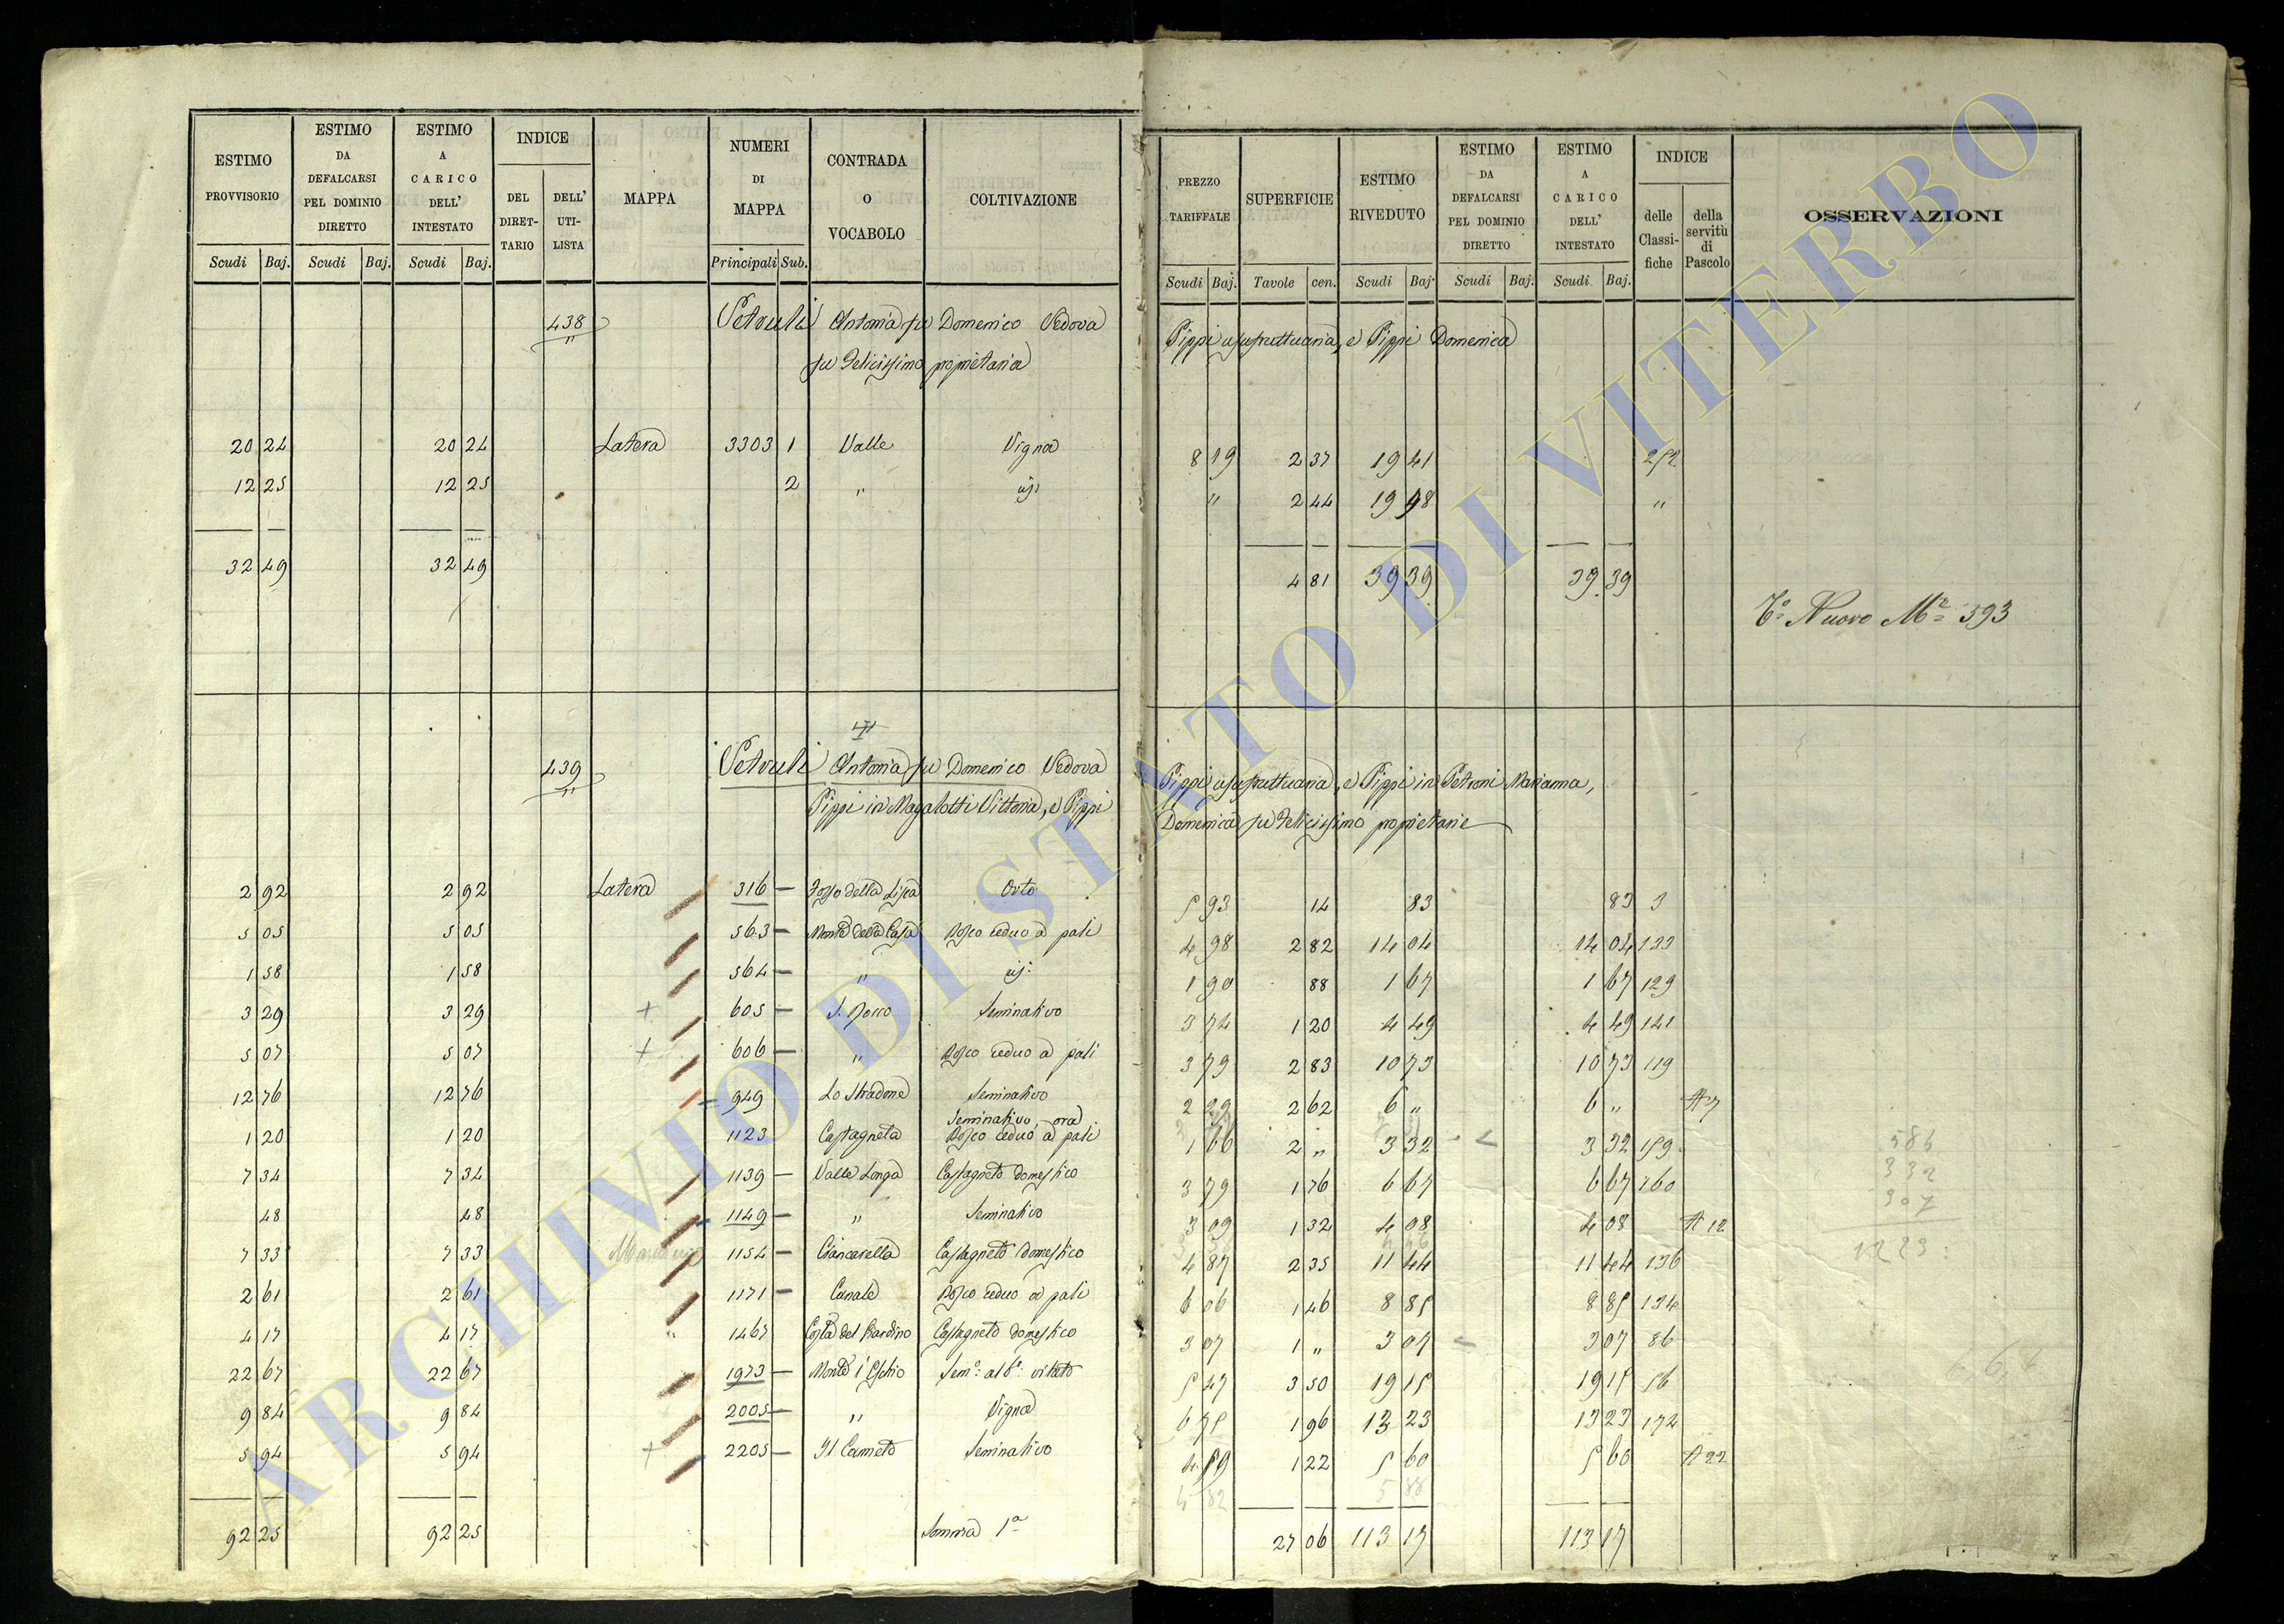 ESTIMO PROVVISORIO | ESTIMO DA DEFALCARSI PEL DOMINIO DIRETTO | ESTIMO A CARICO DELL' INTESTATO | INDICE | MAPPA | NUMERI DI MAPPA | CONTRADA O VOCABOLO | COLTIVAZIONE | PREZZO TARIFFALE | SUPERFICIE | ESTIMO RIVEDUTO | ESTIMO DA DEFALCARSI PEL DOMINIO DIRETTO | ESTIMO A CARICO DELL' INTESTATO | INDICE | OSSERVAZIONI
DEL DIRETTARIO | DELL' UTILISTA | delle Classifiche | della servitù di Pascolo
Scudi | Baj. | Scudi | Baj. | Scudi | Baj. | Principali | Sub. | Scudi | Baj. | Tavole | cen. | Scudi | Baj. | Scudi | Baj. | Scudi | Baj.
438 Petruli Antonia fu Domenico Vedova Pippi usufruttuaria, e Pippi Domenica
fu Felicissimo proprietaria
20 24 | 20 24 | Latera | 3303 | 1 | Valle | Vigna | 8 19 | 2 37 | 19 41 | 252
12 25 | 12 25 | 2 | " | id: | " | 2 44 | 19 98 | "
32 49 | 32 49 | 4 81 | 39 39 | 39 39
Nuovo 393
439 Petruli Antonia fu Domenico Vedova Pippi usufruttuaria, e Pippi in Petroni Marianna,
Pippi in Magalotti Vittoria, e Pippi Domenica fu Felicissimo proprietarie
2 92 | 2 92 | Latera | 316 — | Fosso della Lisca | Orto | 5 93 | 14 | 83 | 83 | 3
5 05 | 5 05 | 563 — | Monte della Casa | Bosco ceduo a pali | 4 98 | 2 82 | 14 04 | 14 04 | 133
1 58 | 1 58 | 564 — | " | id: | 1 90 | 88 | 1 67 | 1 67 | 129
3 29 | 3 29 | + | 605 — | S. Rocco | Seminativo | 3 74 | 1 20 | 4 49 | 4 49 | 141
5 07 | 5 07 | + | 606 — | " | Bosco ceduo a pali | 3 79 | 2 83 | 10 73 | 10 73 | 119
12 76 | 12 76 | 949 | Lo Stradone | Seminativo | 2 29 | 2 62 | 6 " | 6 " | A 7
1 20 | 1 20 | 1123 | Castagneta | Seminativo, ora Bosco ceduo a pali | 1 66 | 2 " | 3 32 | 3 32 | 159
7 34 | 7 34 | 1139 — | Valle Longa | Castagneto domestico | 3 79 | 1 76 | 6 67 | 6 67 | 160
48 | 48 | 1149 — | " | Seminativo | 3 09 | 1 32 | 4 08 | 4 08 | A 12
7 33 | 7 33 | 1154 — | Ciancarella | Castagneto domestico | 4 87 | 2 35 | 11 44 | 11 44 | 136
2 61 | 2 61 | 1171 — | Canale | Bosco ceduo a pali | 6 06 | 1 46 | 8 85 | 8 85 | 134
4 17 | 4 17 | " | 1467 | Costa del Bardino | Castagneto domestico | 3 07 | 1 " | 3 07 | 3 07 | 86
22 67 | 22 67 | 1973 — | Monte | Sem.o alb.o vitato | 5 47 | 3 50 | 19 15 | 19 15 | 56
9 84 | 9 84 | 2005 — | " | Vigna | 6 75 | 1 96 | 13 23 | 13 23 | 172
5 94 | 5 94 | + | 2205 — | Il Canneto | Seminativo | 4 59 | 1 22 | 5 60 | 5 60 | A 22
4 82 | 5 88
92 25 | 92 25 | Somma 1a | 27 06 | 113 17 | 113 17
586
332
307
1223
ARCHIVIO DI STATO DI VITERBO